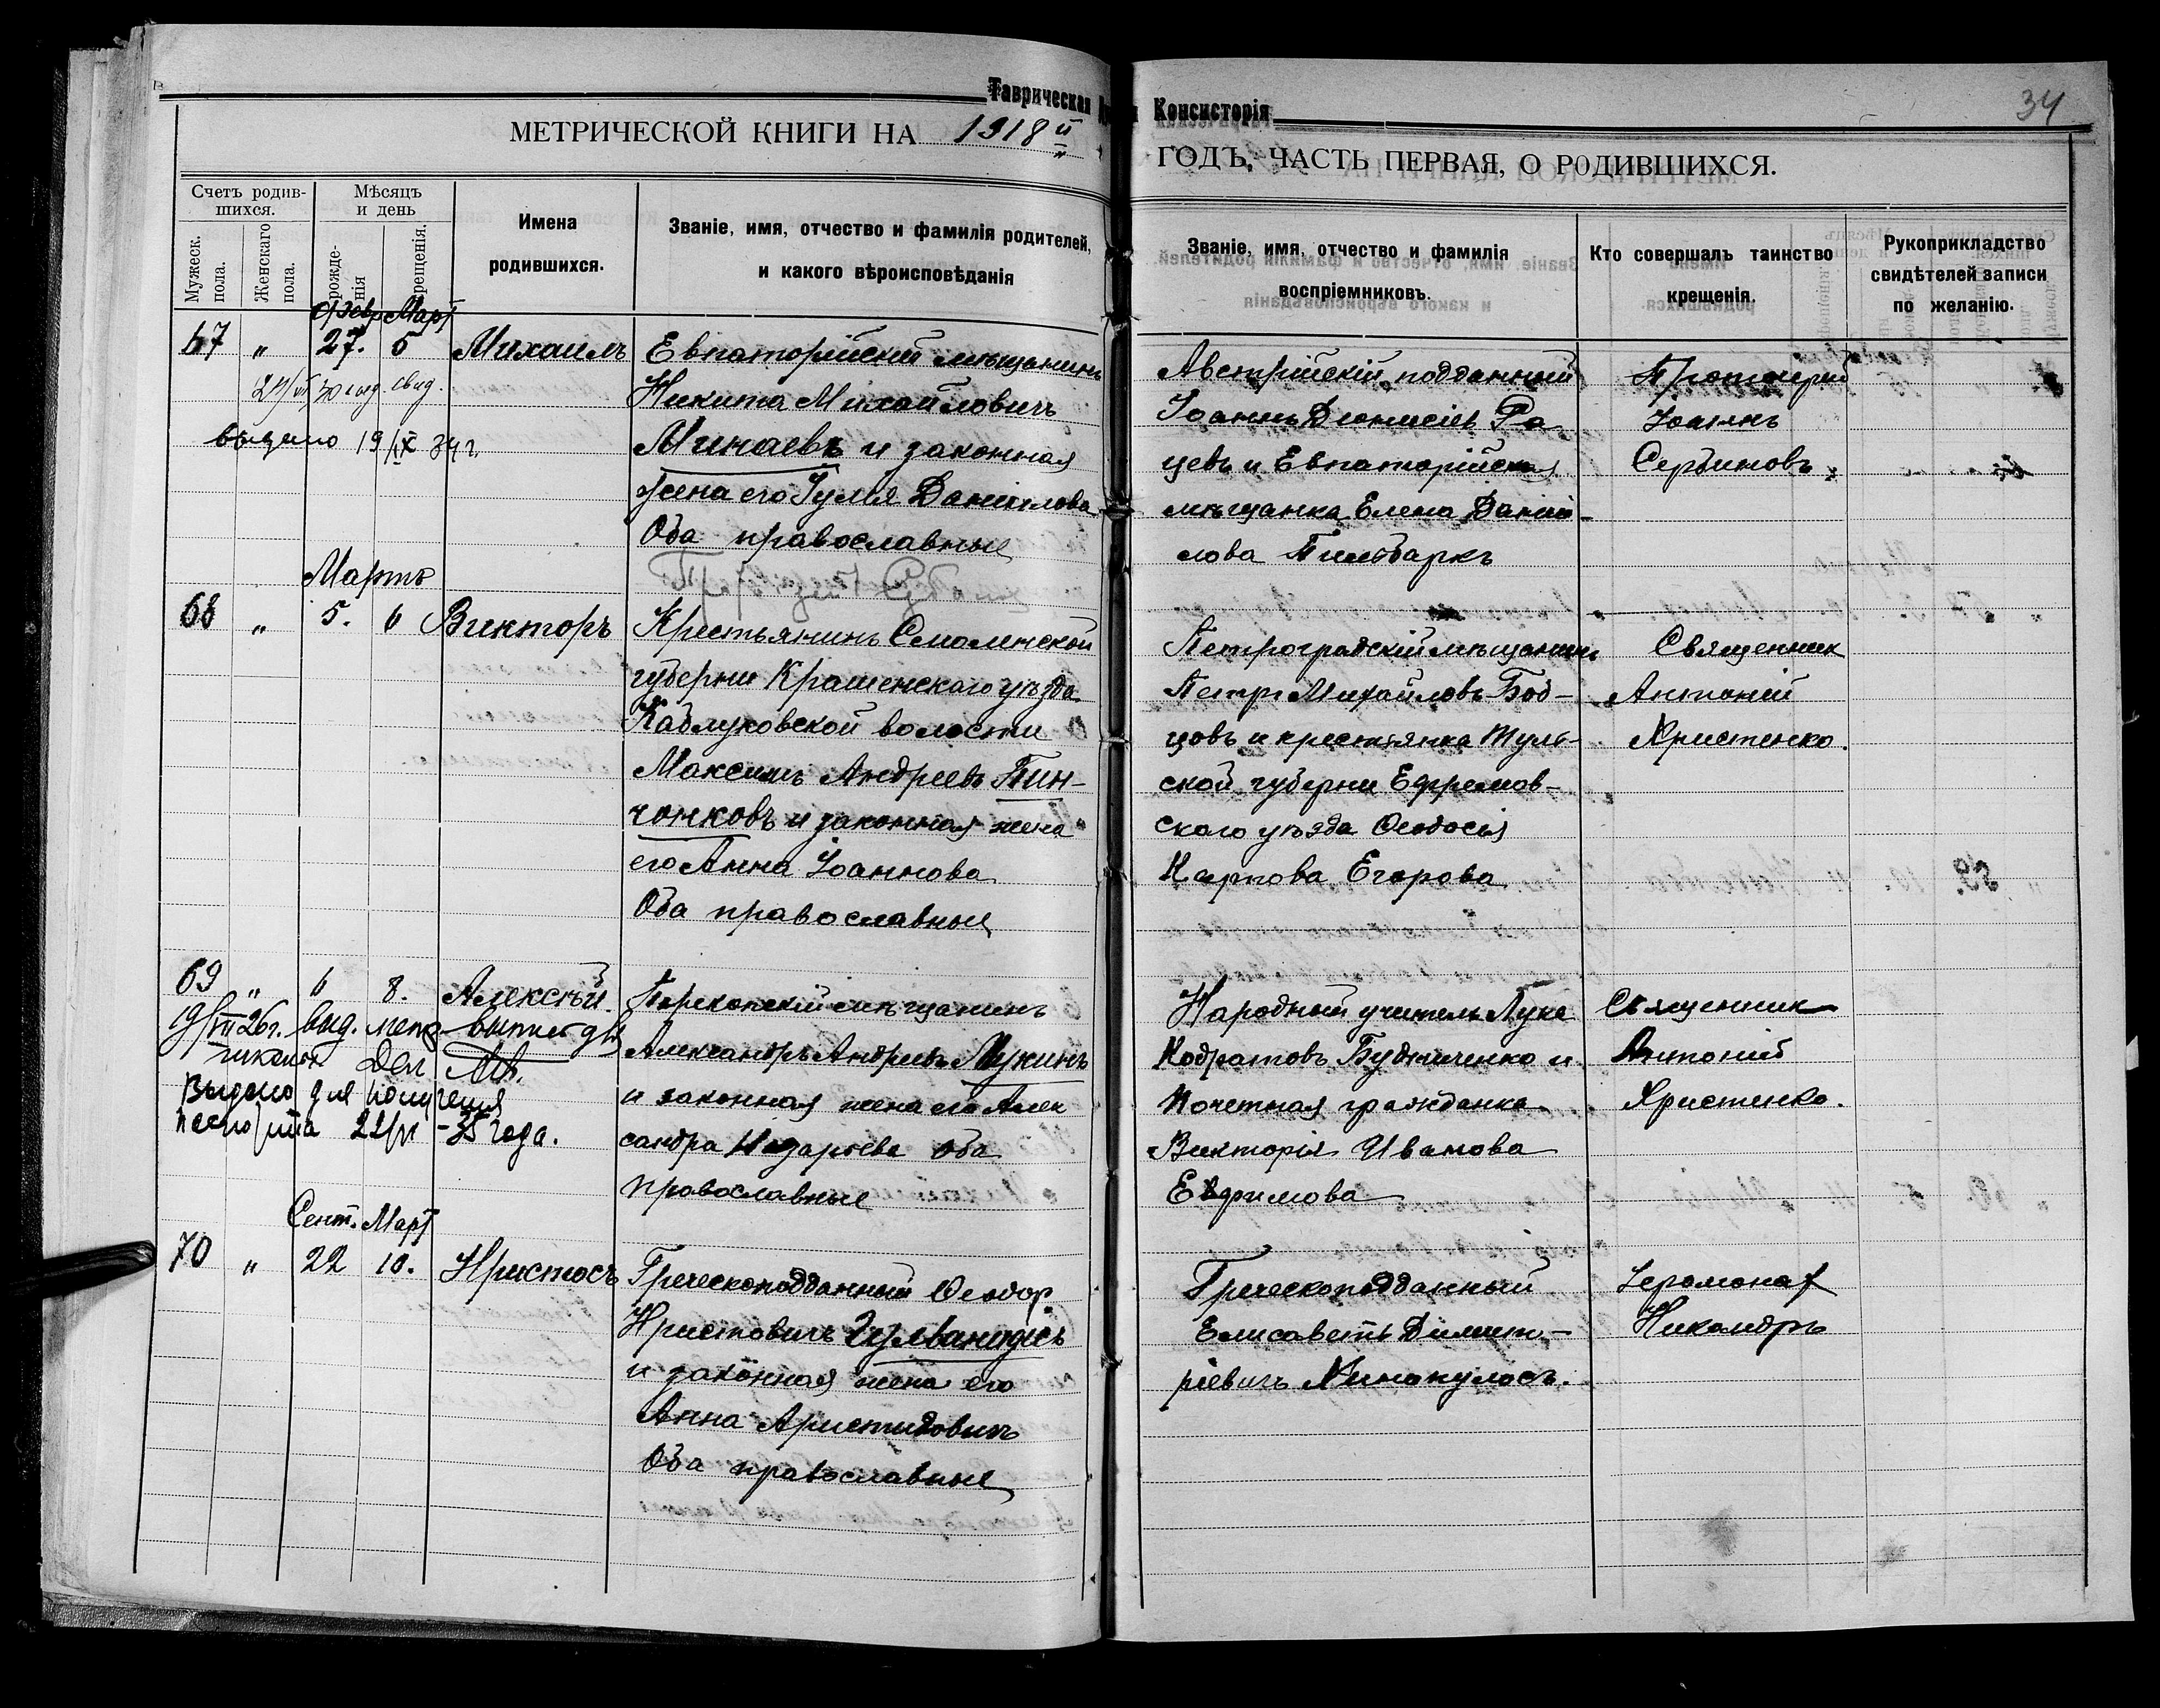 Таврическая
Консисторія
34
МЕТРИЧЕСКОЙ КНИГИ НА 1918 й
ГОДЪ, ЧАСТЬ ПЕРВАЯ, О РОДИВШИХСЯ.
Счетъ родив-
шихся.
Мужеск.
пола.
Женскаго
пола.
Мѣсяцъ
и день
рожде-
нія
крещенія.
Имена
родившихся.
Званіе, имя, отчество и фамилія родителей,
и какого вѣроисповѣданія
Званіе, имя, отчество и фамилія
воспріемниковъ.
Кто совершалъ таинство
крещенія.
Рукоприкладство
свидѣтелей записи
по желанію.
Февр Март
67 " 27. 5 Михаилъ
свид.
выдано 19 IX 34 г.
Евпаторійскій мѣщанинъ
Никита Михайловичъ
Минаевъ и законная
жена его Іулія Даниилова
Оба православные
Австрійскій подданный
Іоаннъ Діонисіев Ра
цевъ и Евпаторійская
мѣщанка Елена Даніи-
лова Гильбаркъ
Протоіерей
Іоаннъ
Сербиновъ
Мартъ
68 " 5. 6 Викторъ
Крестьянинъ Смоленской
губерніи Крашенскаго уѣзда
Каблуковской волости
Максимъ Андреевъ Пин-
чонковъ и законная жена
его Анна Іоаннова
Оба православные
Петроградскій мѣщанинъ
Петръ Михайловъ Боб-
цовъ и крестьянка Туль-
ской губерніи Ефремов-
скаго уѣзда Ѳеодосія
Карпова Егорова
Священник
Антоній
Христенко.
69 " 6 8. Алексѣй.
19/III 26 г. выд. метр выпись для
Выдано для получения
паспорта 22/VI - 35 года.
Перекопскій мѣщанинъ
Александръ Андреевъ Мукинъ
и законная жена его Алек
сандра Назарьева оба
православные
Народный учитель Лука
Кодратовъ Будниченко и
Почетная гражданка
Викторія Иванова
Евфимова
Священник
Антоній
Христенко.
Сент. Март
70 " 22 10. Христосъ
Греческоподданный Ѳеодор
Христовичъ
и законная жена его
Анна Аристидовичъ
Оба православные
Греческоподданный
Елисаветъ Димит-
ріевичъ Хинопулосъ.
Іеромонах
Никандръ